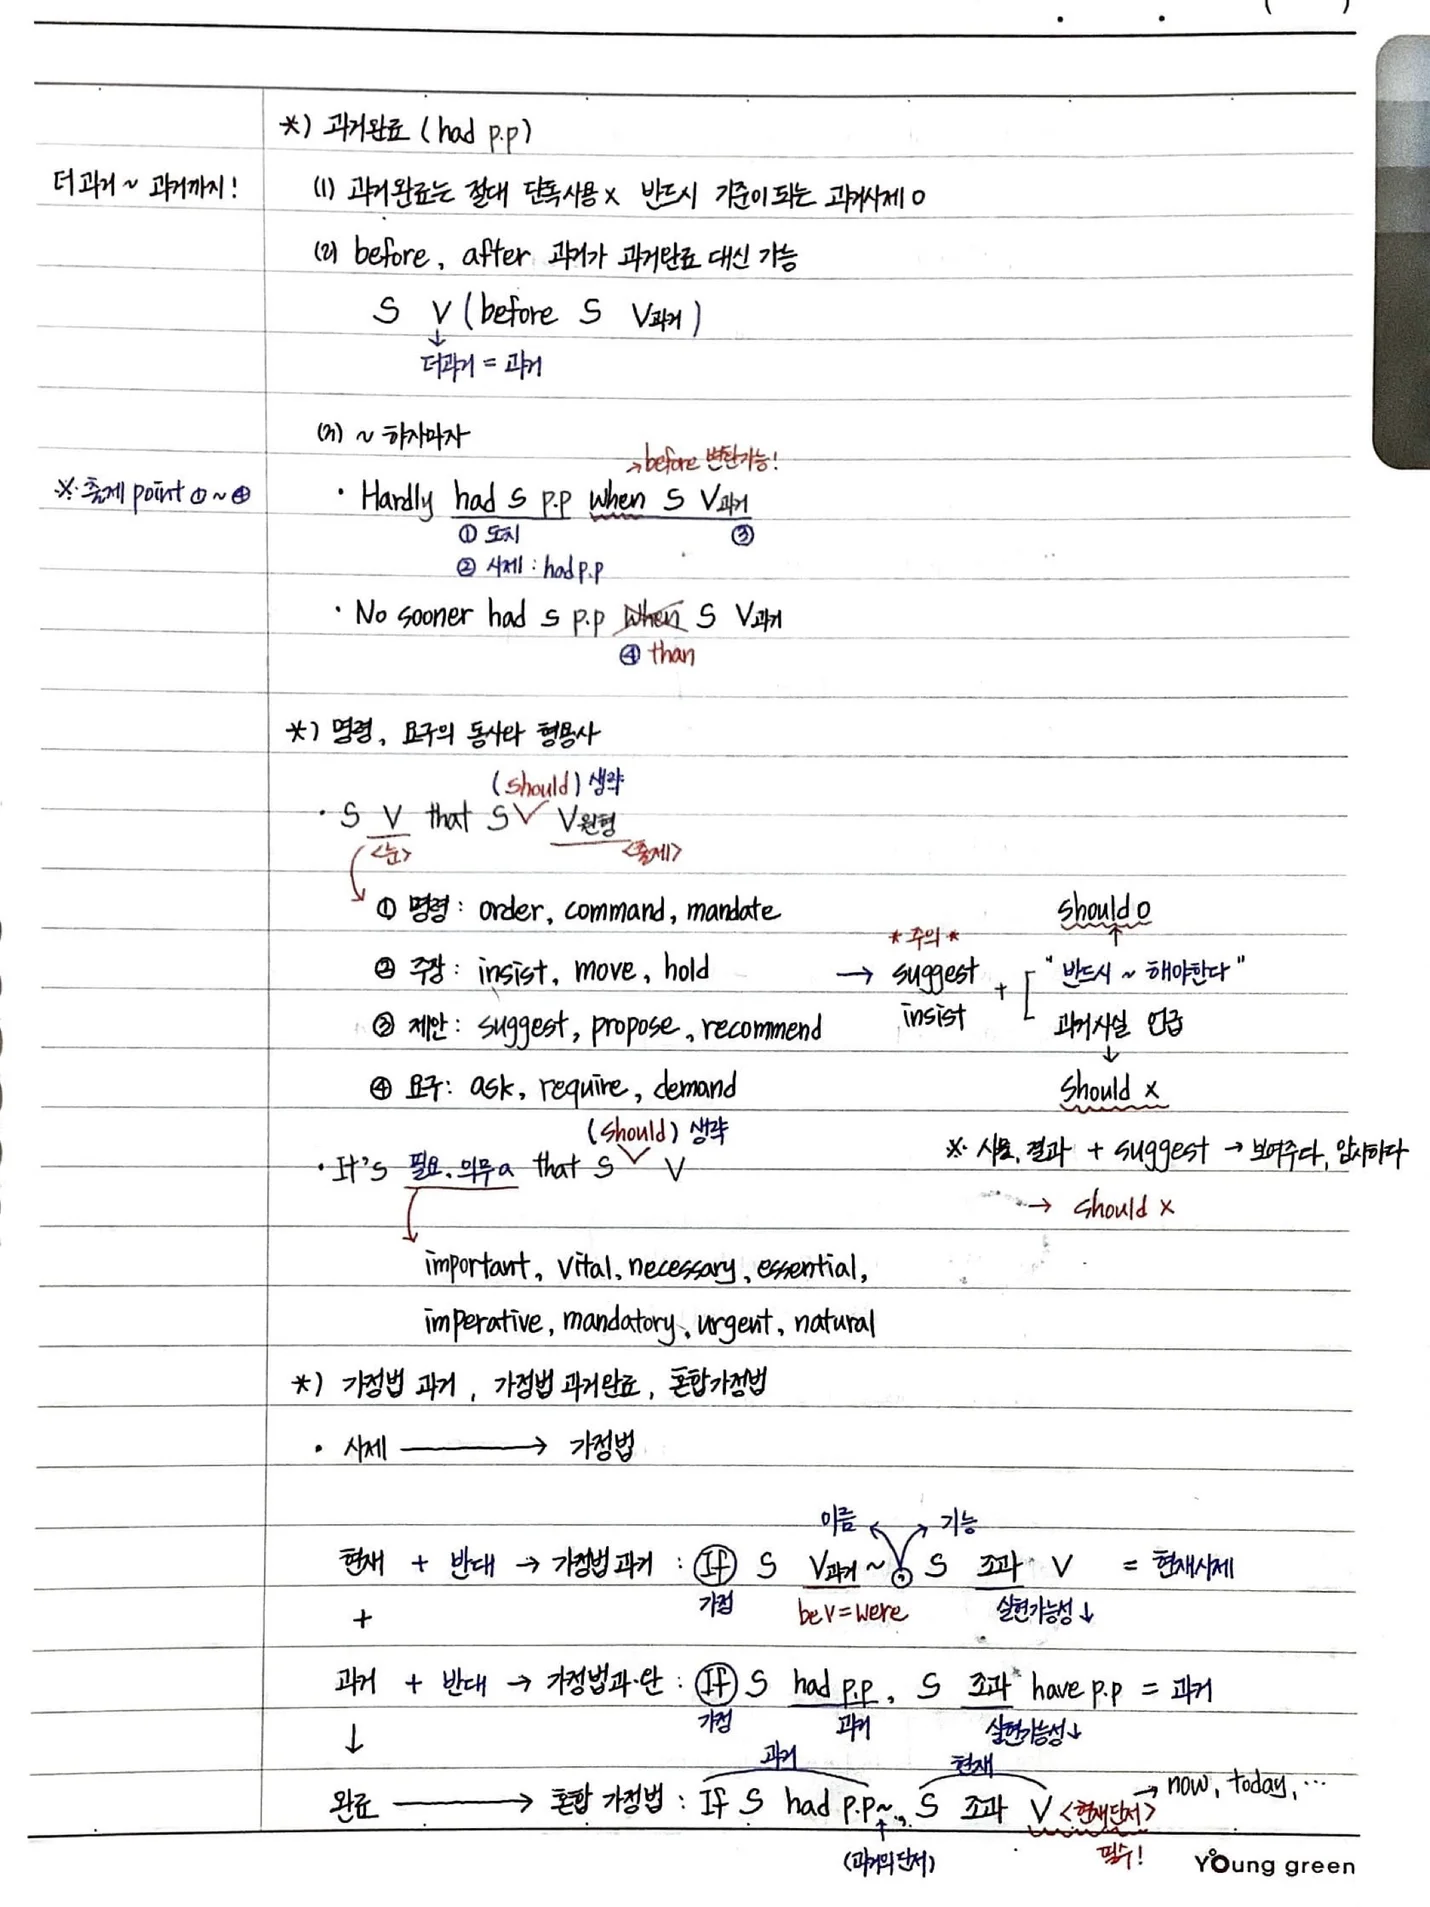 *) 과거완료 (had p.p)
더 과거 ~ 과거까지!
(1) 과거완료는 절대 단독사용 x 반드시 기준이 되는 과거시제 o
(2) before, after 과거가 과거완료 대신 가능
S V (before S V과거)
↓
더과거 = 과거
(3) ~ 하자마자
→before 변환가능!
※ 출제 point ①~④
· Hardly had S p.p when S V과거
① 도치 ③
② 시제 : had p.p
· No sooner had S p.p when S V과거
④ than
*) 명령, 요구의 동사와 형용사
(should) 생략
· S V that S V V원형
<눈> <출제>
① 명령 : order, command, mandate should o
* 주의 *
② 주장 : insist, move, hold → suggest + [ "반드시 ~ 해야한다"
③ 제안 : suggest, propose, recommend insist 과거사실 언급
↓
④ 요구 : ask, require, demand should x
(should) 생략
· It's 필요, 의무a that S V V
※ 사물, 결과 + suggest → 보여주다, 암시하다
→ should x
important, vital, necessary, essential,
imperative, mandatory, urgent, natural
*) 가정법 과거, 가정법 과거완료, 혼합가정법
· 시제 → 가정법
이름 기능
현재 + 반대 → 가정법 과거 : If S V과거 ~, S 조과 V = 현재시제
가정 be V = were 실현가능성↓
+
과거 + 반대 → 가정법과·완 : If S had p.p, S 조과 have p.p = 과거
가정 과거 실현가능성↓
↓
과거 현재
→ now, today, …
완료 → 혼합 가정법 : If S had p.p ~, S 조과 V <현재단서>
(과거의 단서) 필수!
Young green